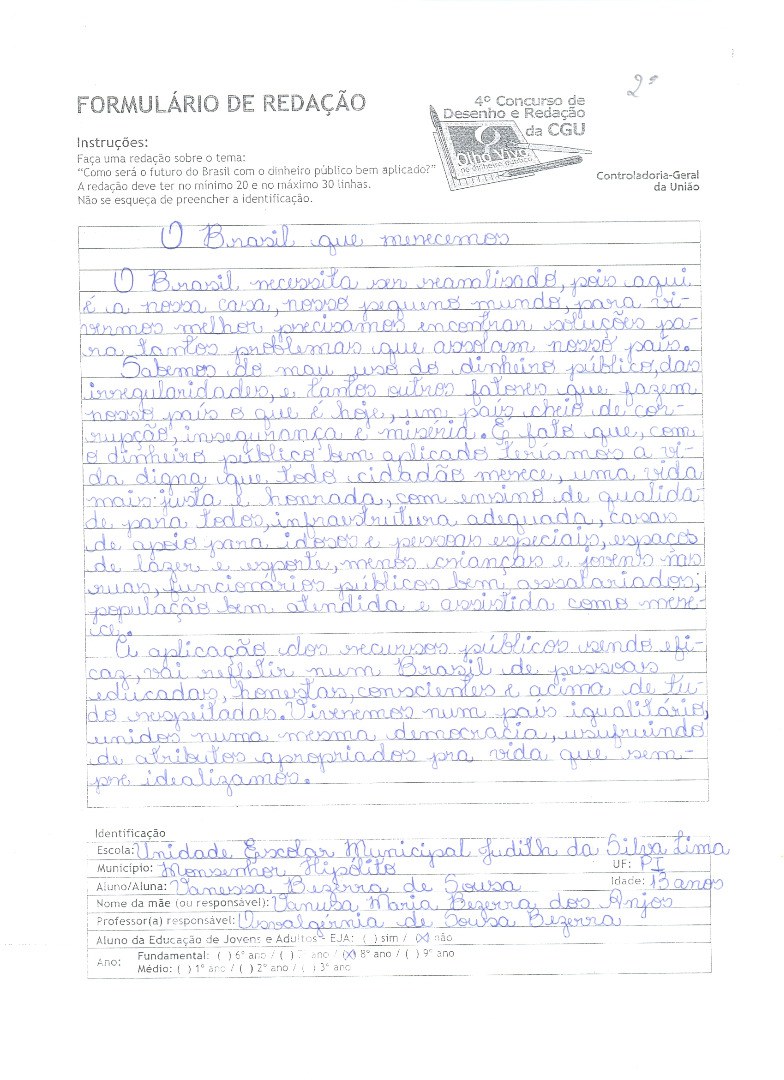 2º
FORMULÁRIO DE REDAÇÃO
4º Concurso de
Desenho e Redação
da CGU
Olho Vivo
no dinheiro público
Controladoria-Geral
da União
Instruções:
Faça uma redação sobre o tema:
“Como será o futuro do Brasil com o dinheiro público bem aplicado?”
A redação deve ter no mínimo 20 e no máximo 30 linhas.
Não se esqueça de preencher a identificação.
O Brasil que merecemos
O Brasil necessita ser reanalisado, pois aqui
é a nossa casa, nosso pequeno mundo, para vi-
vermos melhor precisamos encontrar soluções pa-
ra tantos problemas que assolam nosso país.
Sabemos do mau uso do dinheiro público, das
irregularidades, e tantos outros fatores que fazem
nosso país o que é hoje, um país cheio de cor-
rupção, insegurança e miséria. É fato que, com
o dinheiro público bem aplicado teríamos a vi-
da digna que todo cidadão merece, uma vida
mais justa e honrada, com ensino de qualida-
de para todos, infraestrutura adequada, casas
de apoio para idosos e pessoas especiais, espaços
de lazer e esporte, menos crianças e jovens nas
ruas, funcionários públicos bem assalariados,
população bem atendida e assistida como mere-
ce.
A aplicação dos recursos públicos sendo efi-
caz, vai refletir num Brasil de pessoas
educadas, honestas, conscientes e acima de tu-
do respeitadas. Viveremos num país igualitário,
unidos numa mesma democracia, usufruindo
de atributos apropriados pra vida que sem-
pre idealizamos.
Identificação
Escola: Unidade Escolar Municipal Judith da Silva Lima
Município: Monsenhor Hipólito UF: PI
Aluno/Aluna: Vanessa Bezerra de Sousa Idade: 13 anos
Nome da mãe (ou responsável): Vanuba Maria Bezerra dos Anjos
Professor(a) responsável: Osvalgérnia de Sousa Bezerra
Aluno da Educação de Jovens e Adultos - EJA: ( ) sim / (X) não
Ano: Fundamental: ( ) 6º ano / ( ) 7º ano / (X) 8º ano / ( ) 9º ano
Médio: ( ) 1º ano / ( ) 2º ano / ( ) 3º ano